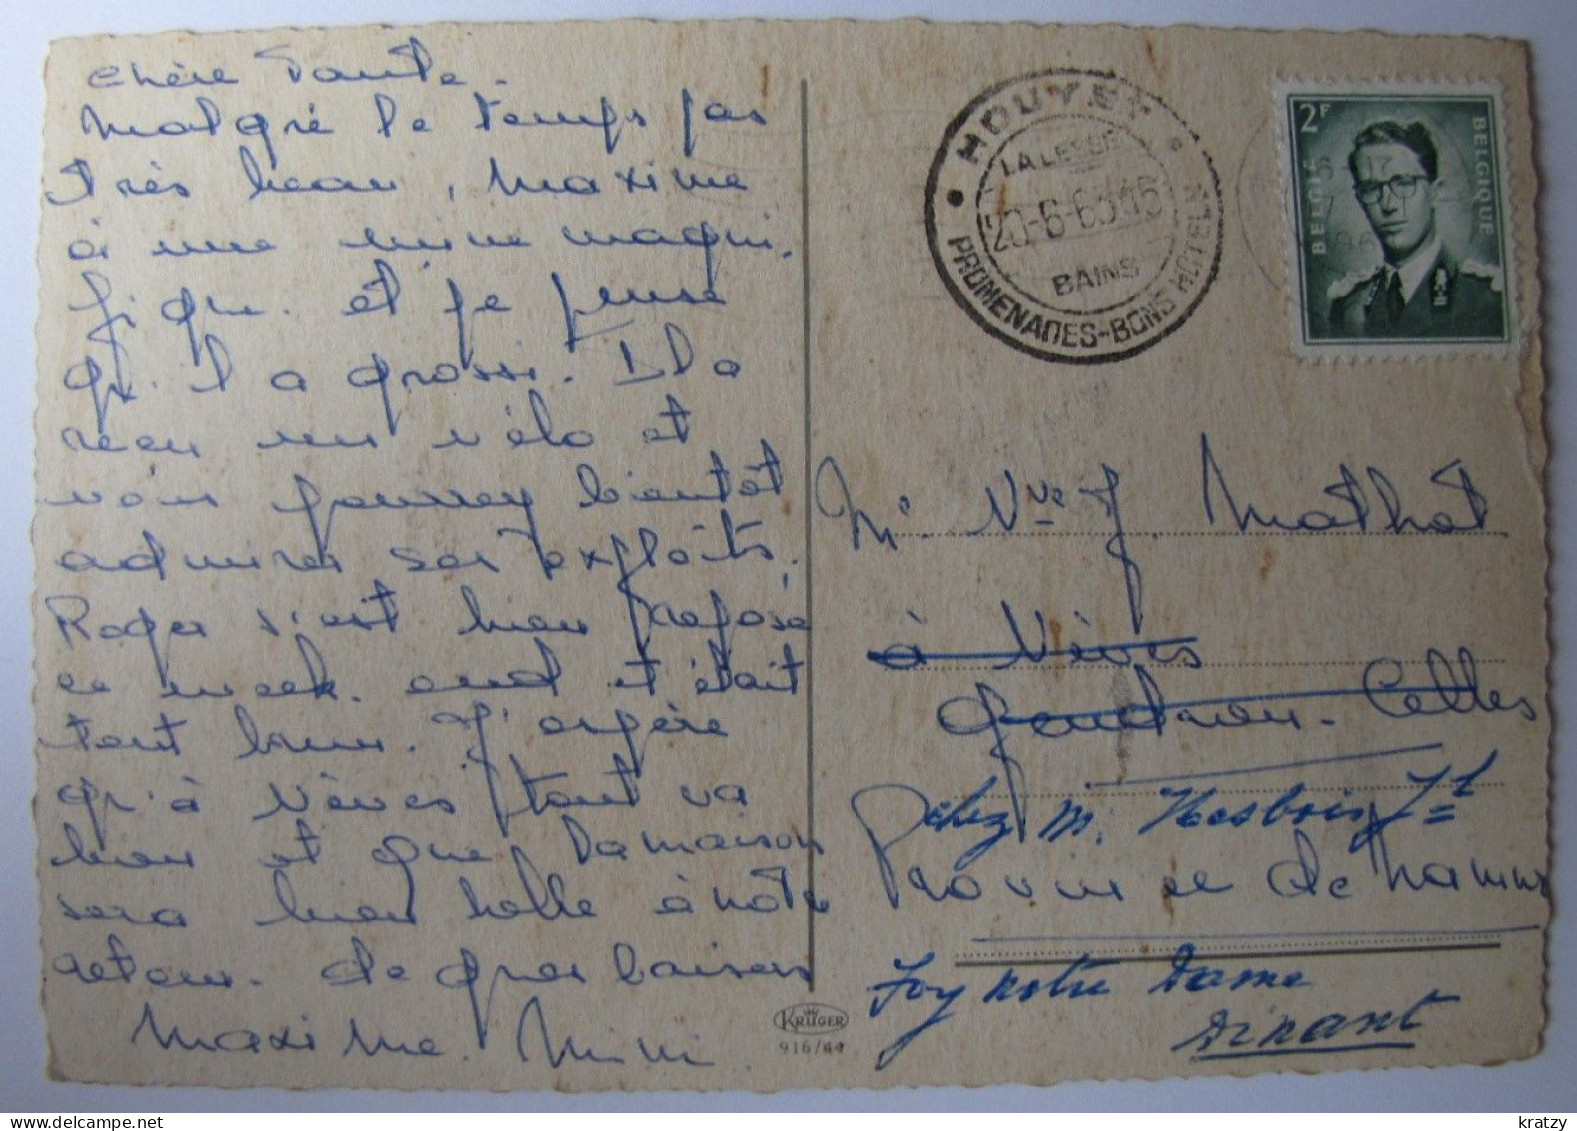 chère Tante.
Malgré le temps pas
très beau, Maxime
à une mine magni.
fique. et je pense
qu'il a grossi. Il a
reçu un vélo et
vous pourrez bientôt
admirer ses exploits.
Roger s'est bien reposé
ce week-end et était
tout brun. J'espère
qu'à Vêves tout va
bien et que la maison
sera bien belle à notre
retour. de gros baisers
Maxime. Mimi
HOUYET
LA LESSE
20-6-63 16
BAINS
PROMENADES-BONS HOTELS
2F
BELGIË BELGIQUE
Me Vve J Mathot
à Vêves
Gendron-Celles
chez M. Hesbois Jh
Province de Namur
Foy Notre Dame
Dinant
KRÜGER
916/44
kratzy